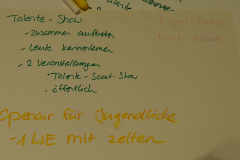 Talente - Show
- zusammen auftreten
- Leute kennenlernen
- 2 Veranstaltungen
- Talente - Scout - Show
- öffentlich
Openair für Jugendliche
- 1 WE mit zelten